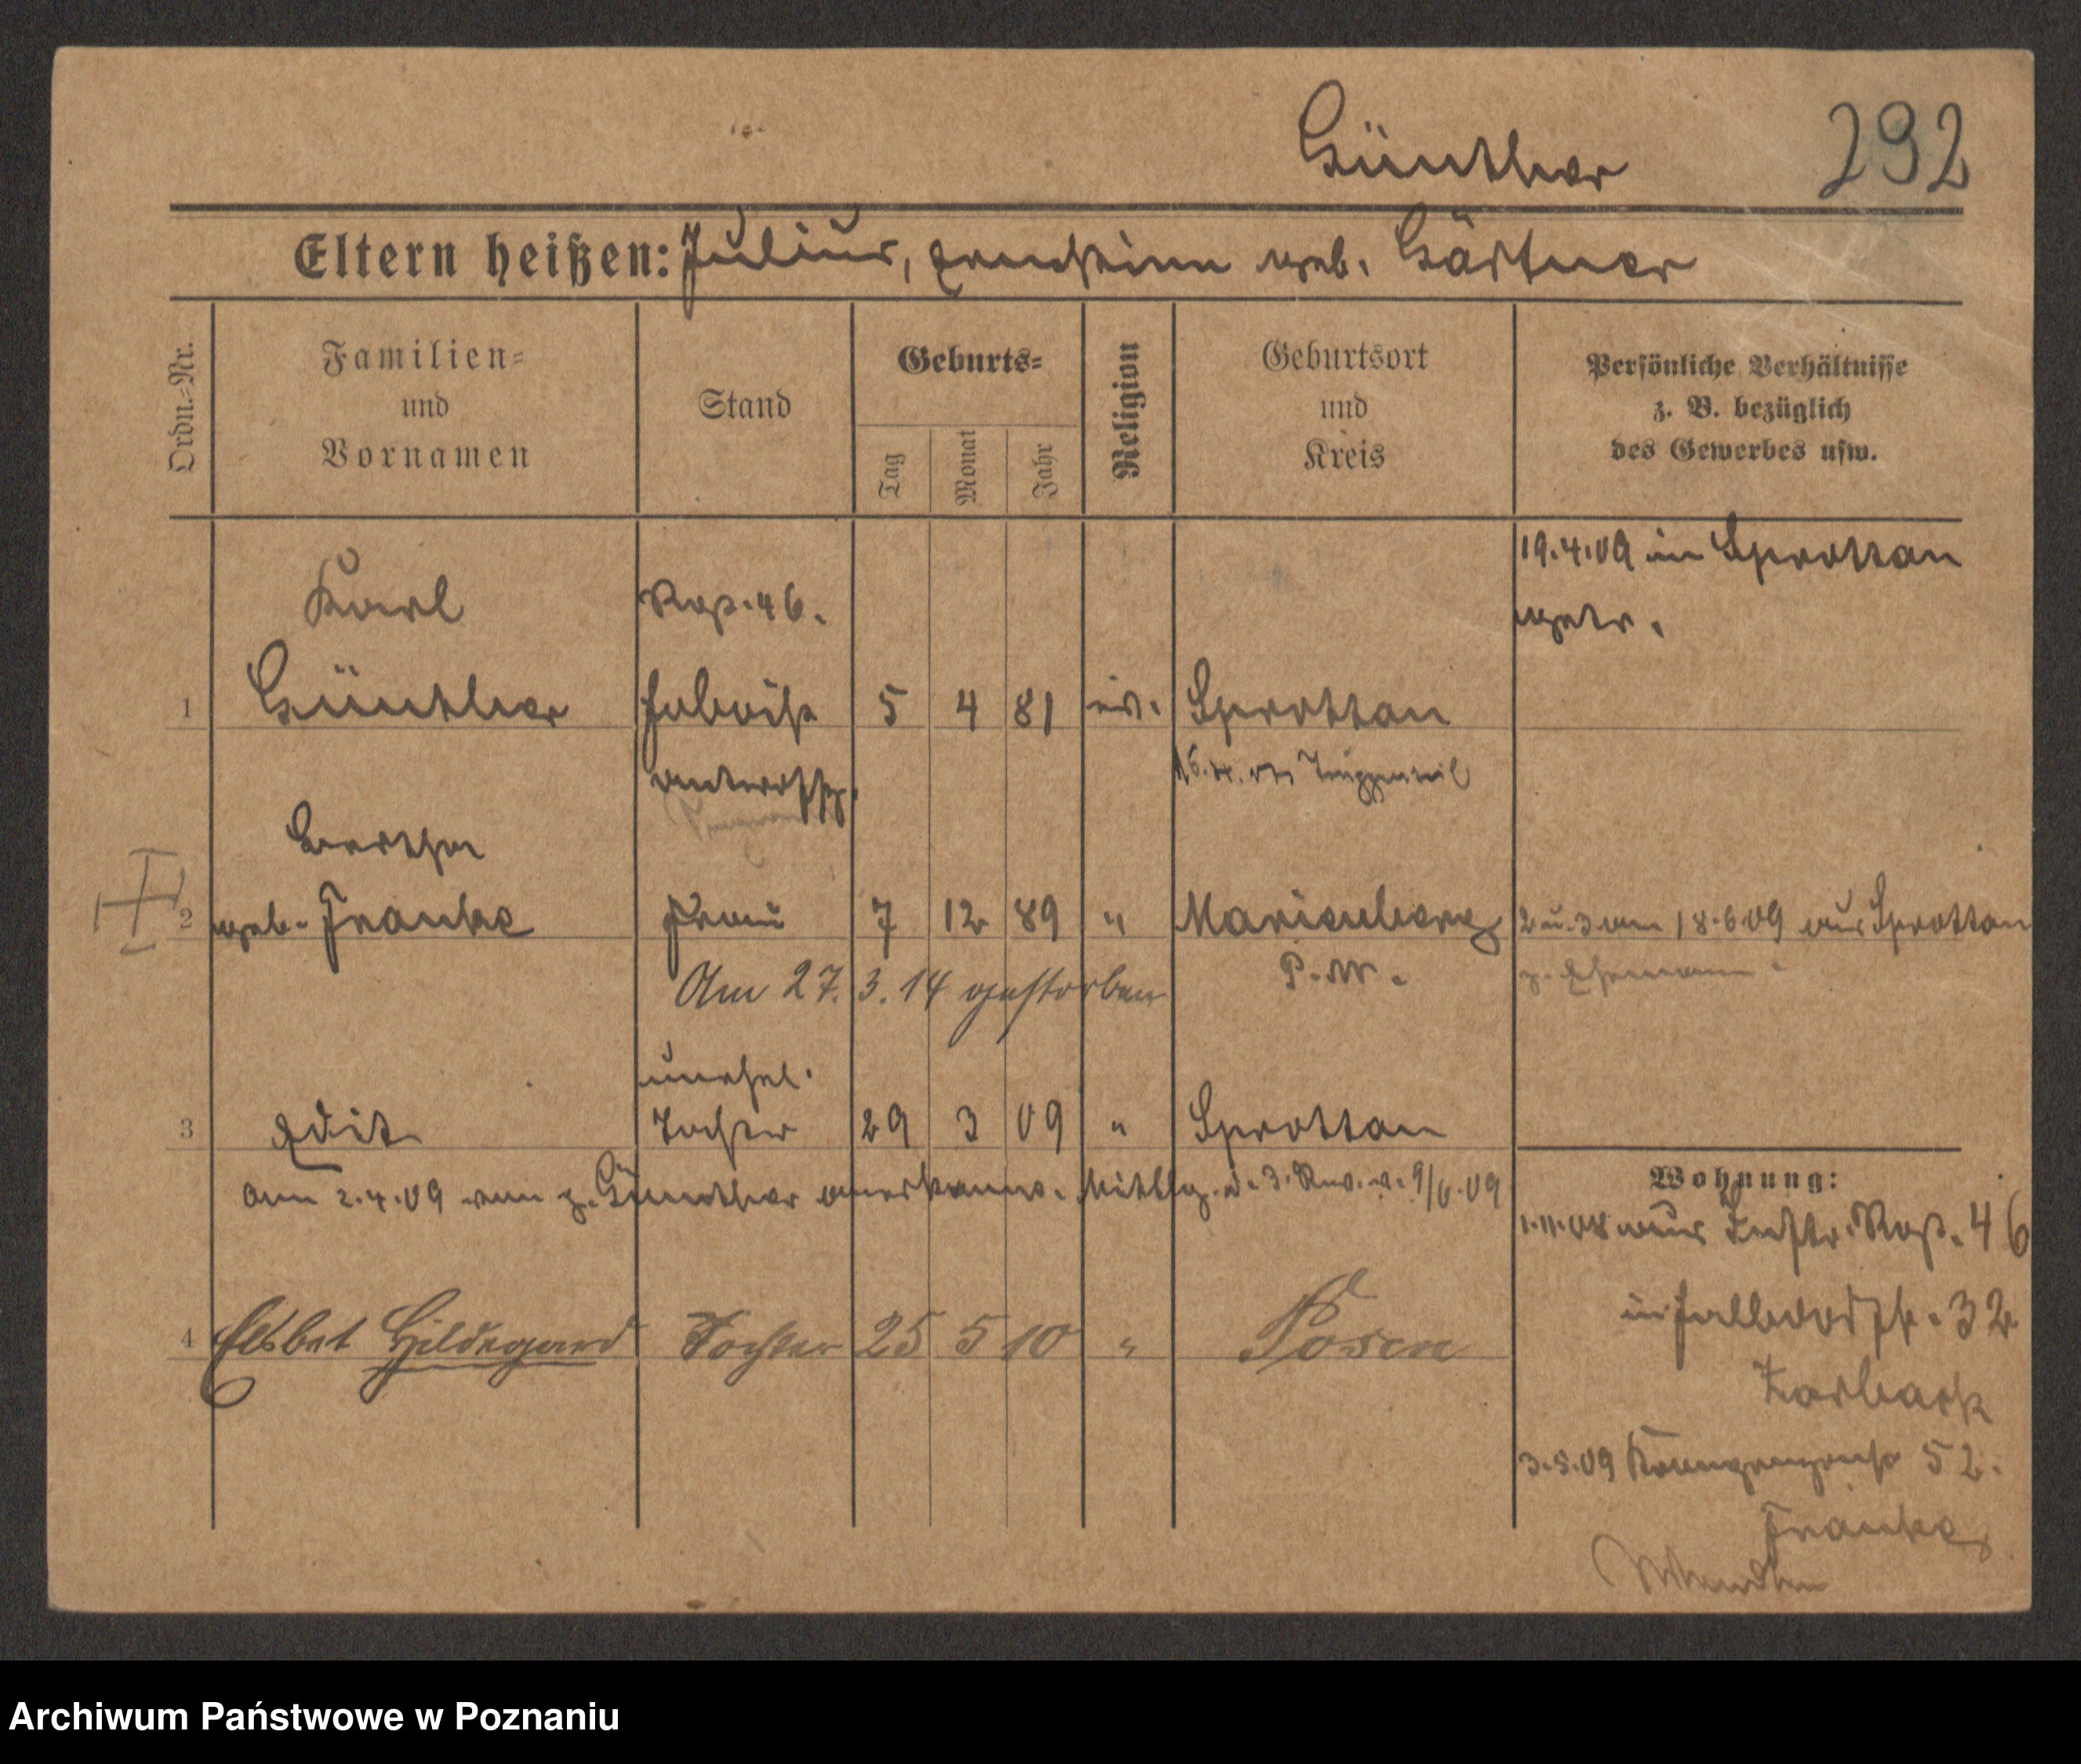 Günther 292
Eltern heißen: Julius, Ernestine geb. Gärtner
Ordn.-Nr.
Familien-
und
Vornamen
Stand
Geburts-
Tag
Monat
Jahr
Religion
Geburtsort
und
Kreis
Persönliche Verhältnisse
z. B. bezüglich
des Gewerbes usw.
19.4.09 in Sprottau
getr.
Karl
Rgt. 46.
1 Günther 5 4 81 ev. Sprottau
Bertha
2 geb. Franke Frau 7 12 89 " Marienberg 2 u. 3 am 18.6.09 aus Sprottau
P. W. z. Ehemann.
Am 27. 3. 14 gestorben
unehel.
3 Edit Tochter 29 3 09 " Sprottau
am 2.4.09 von p. Günther anerkannt. Mittlg. d. 3. Rev. v. 9/6.09
Wohnung:
1.11.08 aus Instr. Rgt. 46
4 Elsbet Hildegard Tochter 25 5 10 " Posen
32
3.5.09 52.
Franke
Archiwum Państwowe w Poznaniu